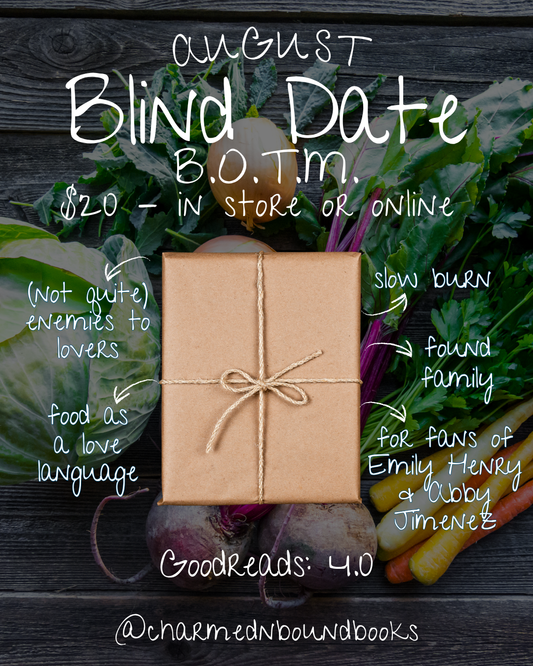 AUGUST
Blind Date
B.O.T.M.
$20 - in store or online
(not quite)
enemies to
lovers
food as
a love
language
slow burn
found
family
for fans of
Emily Henry
& Abby
Jimenez
GoodReads: 4.0
@charmednboundbooks